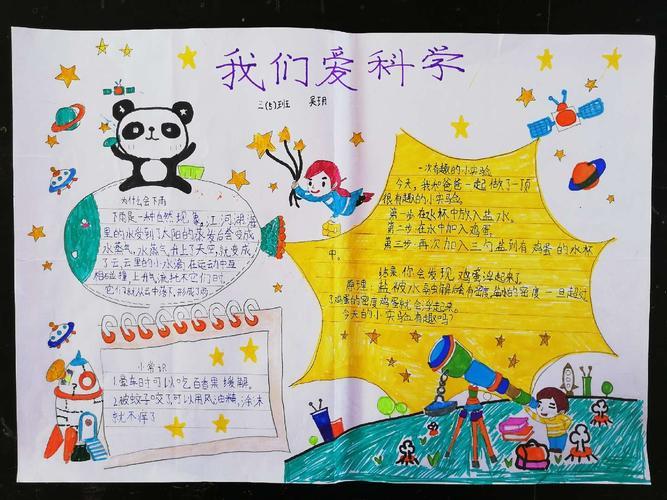 我们爱科学
三(5)班 吴玥
为什么会下雨
下雨是一种自然现象,江河湖海
里的水受到了太阳的蒸发后会变成
水蒸气,水蒸气升上了天空,就变成
了云,云里的小水滴在运动中互
相碰撞,上升气流托不它们时,
它们就从云中落下,形成了雨
小常识
1.晕车时可以吃百香果缓解。
2.被蚊子咬了可以用风油精,涂木
就不痒了
一次有趣的小实验
今天,我和爸爸一起做了一项
很有趣的小实验。
第一步:在水杯中放入盐水。
第二步:在水中加入鸡蛋。
第三步:再次加入三勺盐到有鸡蛋的水杯
中。
结果:你会发现鸡蛋浮起来了。
原理:盐被水融解后有密度,盐的密度一旦超过
了鸡蛋的密度鸡蛋就会浮起来。
今天的小实验有趣吗?